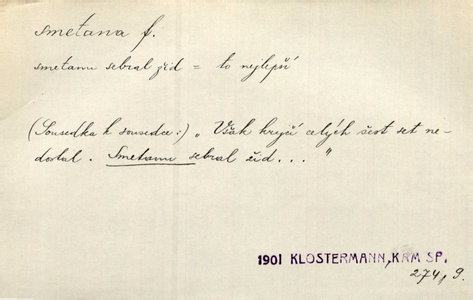 smetana f.
smetanu sebral žid = to nejlepší
(Sousedka k sousedce:) „Však krejčí celých šest set ne-
dostal. Smetanu sebral žid... "
1901 KLOSTERMANN, KRM SP.
274, 9.